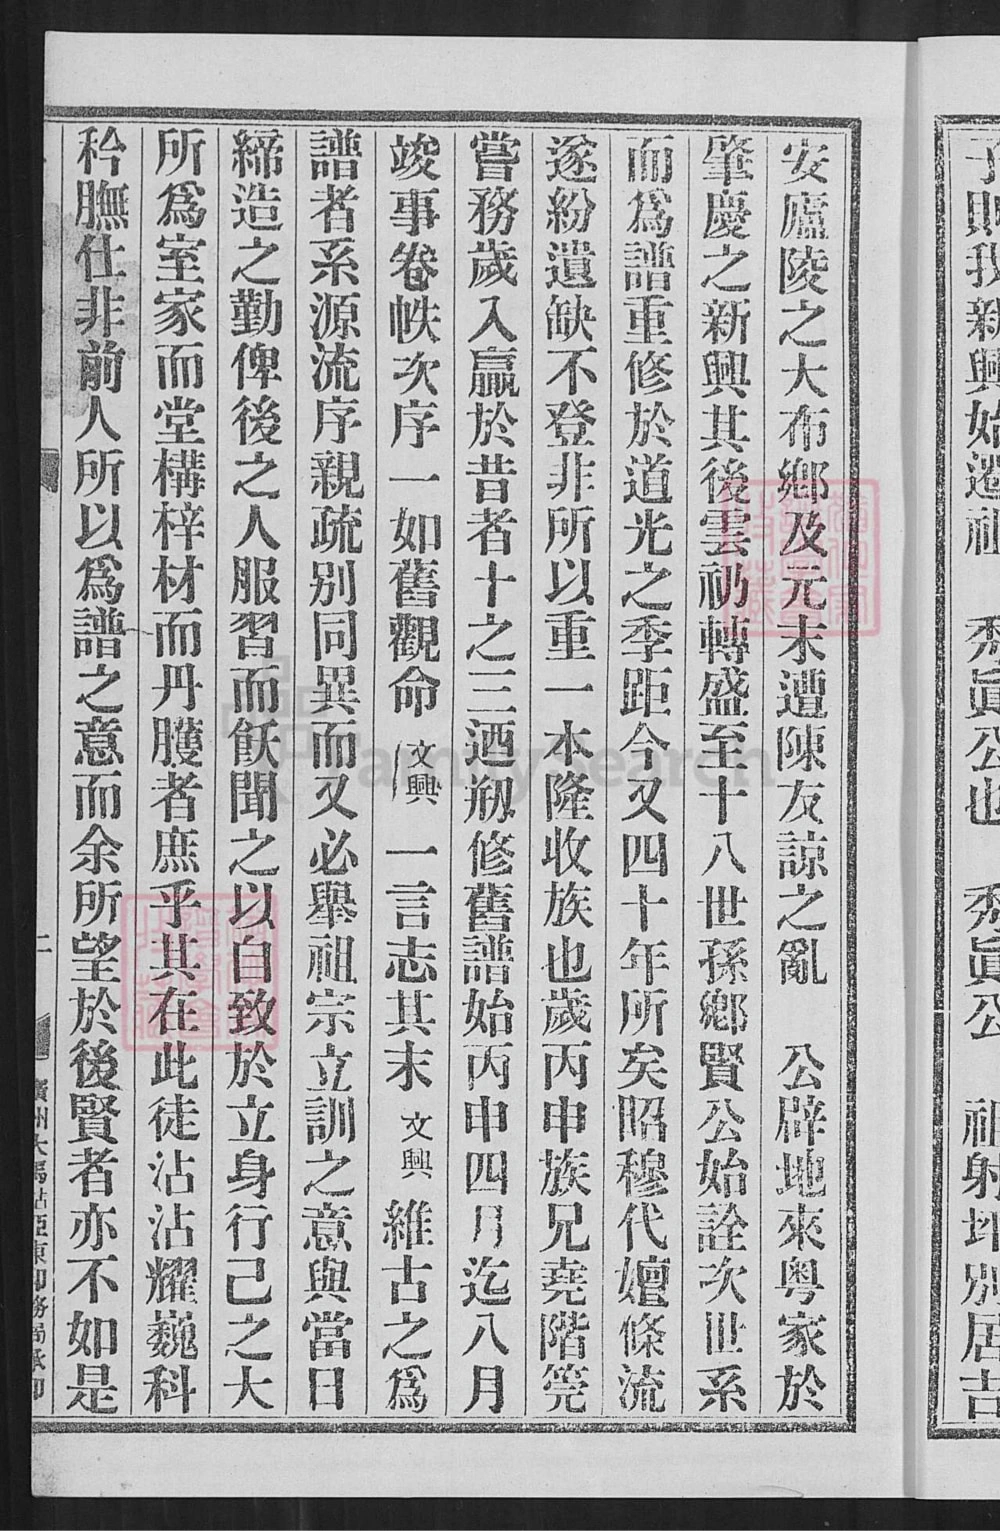 子貺我新興始遷祖 秀眞公也 秀眞公 祖射坪別居吉
安廬陵之大布鄉及元末遭陳友諒之亂 公辟地來粵家於
肇慶之新興其後雲礽轉盛至十八世孫鄉賢公始詮次世系
而爲譜重修於道光之季距今又四十年所矣昭穆代嬗條流
遂紛遺缺不登非所以重一本隆收族也歲丙申族兄堯階筦
嘗務歲入贏於昔者十之三迺剙修舊譜始丙申四月迄八月
竣事卷帙次序一如舊觀命 文興 一言志其末 文興 維古之爲
譜者系源流序親疏別同異而又必舉祖宗立訓之意與當日
締造之勤俾後之人服習而飫聞之以自致於立身行己之大
所爲室家而堂構梓材而丹雘者庶乎其在此徒沾沾耀巍科
矜膴仕非前人所以爲譜之意而余所望於後賢者亦不如是
二 廣州大馬站亞東印務局承印
FamilySearch